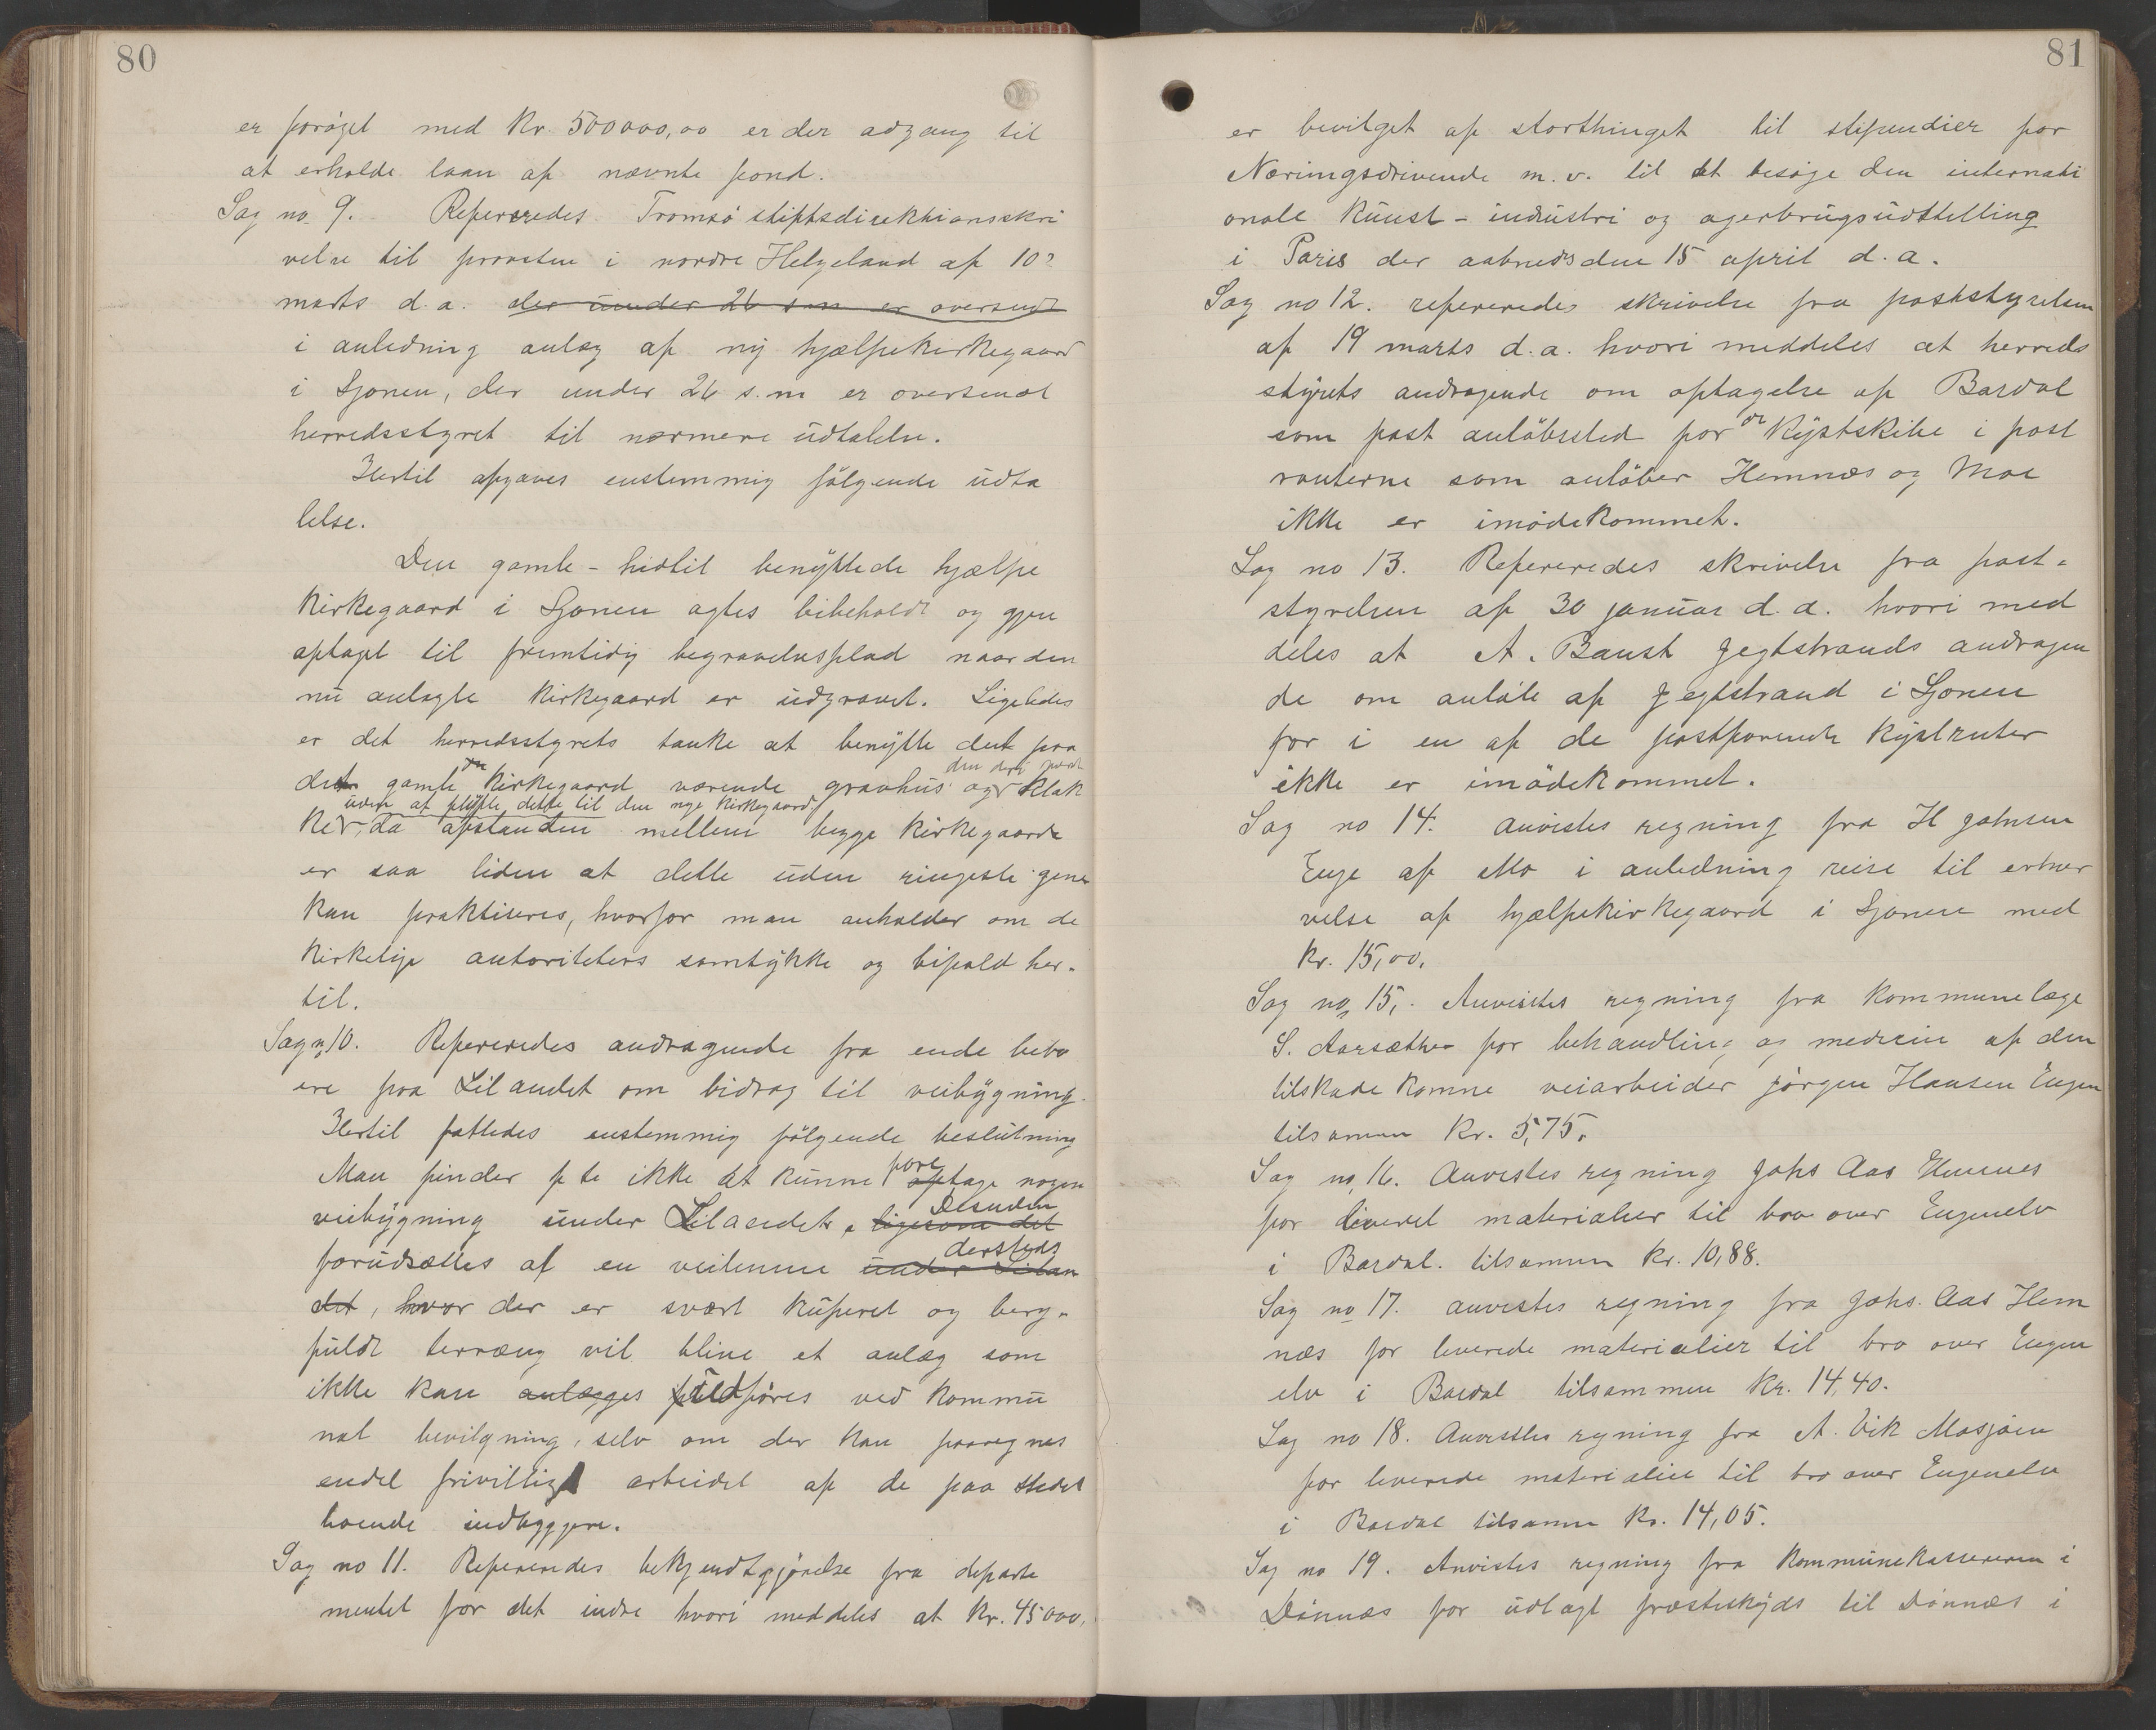 80
er forøget med Kr. 500000,00 er der adgang til
at erholde laan af nævnte fond.
Sag no 9. Refereredes Tromsö stiftsdirektionsskri
velse til provsten i nordre Helgeland af 10?
marts d.a. der under 26 s.m er oversendt
i anledning anlæg af ny hjælpekirkegaard
i Sjonen, der under 26 s.m er oversendt
herredsstyret til nærmere udtalelse.
Hertil afgaves enstemmig følgende udta
lelse.
Den gamle - hidtil benyttede hjælpe
kirkegaard i Sjonen agtes bibeholdt og gjen
optaget til fremtidig begravelsesplads naar den
nu anlagte kirkegaard er udgravet. Ligeledes
er det herredsstyrets tanke at benytte det paa
den gamle kirkegaard værende gravhus og den deri værende klok
uden at flytte dette til den nye kirkegaard,
ke, da afstanden mellem begge kirkegaarde
er saa liden at dette uden ringeste gene
kan praktiseres, hvorfor man anholder om de
kirkelige autoriteters samtykke og bifald her-
til.
Sag no 10. Refereredes andragende fra ende bebo
ere paa Lilandet om bidrag til veibygning.
Hertil fattedes enstemmig følgende beslutning
Man finder f te ikke at kunne foretage nogen
veibygning under Lilandet, ligesom det Desuden
forudsættes af en veilinie under Lilan dersteds
det, hvor der er svært kuperet og berg-
fuldt terræng vil blive et anlæg som
ikke kan anlægges fuldføres ved kommu
nal bevilgning, selv om der kan paaregnes
endel frivilligt arbeidet af de paa stedet
boende indbyggere.
Sag no 11. Refereredes bekjendtgjørelse fra departe
mentet for det indre hvori meddeles at Kr. 45000,
81
er bevilget af storthinget til stipendier for
Næringsdrivende m.v. til at besøge den internati
onale Kunst - industri og agerbrugsudstilling
i Paris der aabnedes den 15 april d.a.
Sag no 12. refereredes skrivelse fra poststyrelsen
af 19 marts d.a. hvori meddeles at herreds
styrets andragende om optagelse af Bardal
som post anløbssted for de kystskibe i post
routerne som anløber Hemnæs og Moe
ikke er imødekommet.
Sag no 13. Refereredes skrivelse fra post-
styrelsen af 30 januar d.a. hvori med
deles at A. Baust Jegtstrands andragen
de om anløb af Jegtstrand i Sjonen
for i en af de postførende kystruter
ikke er imødekommet.
Sag no 14. anvistes regning fra H Johnsen
Enge af Mo i anledning reise til erhver
velse af hjælpekirkegaard i Sjonen med
Kr. 15,00.
Sag no 15. Anvistes regning fra kommunelæge
S. Aarsæther for behandling og medecin af den
tilskadekomne veiarbeider Jørgen Hansen Engen
tilsamen Kr. 5,75.
Sag no 16. Anvistes regning Johs Aas Hemnes
for leveret materialier til bro over Engenelv
i Bardal. tilsamen Kr. 10,88.
Sag no 17. anvistes regning fra Johs. Aas Hem
næs for leverede materialier til bro over Engen
elv i Bardal tilsammen Kr. 14,40.
Sag no 18. Anvistes regning fra A. Vik Mosjøen
for leverede materialier til bro over Engenelv
i Bardal tilsamen Kr. 14,05.
Sag no 19. Anvistes regning fra Kommunekassereren i
Dönnæs for udlagt presteskyds til Dönnæs i